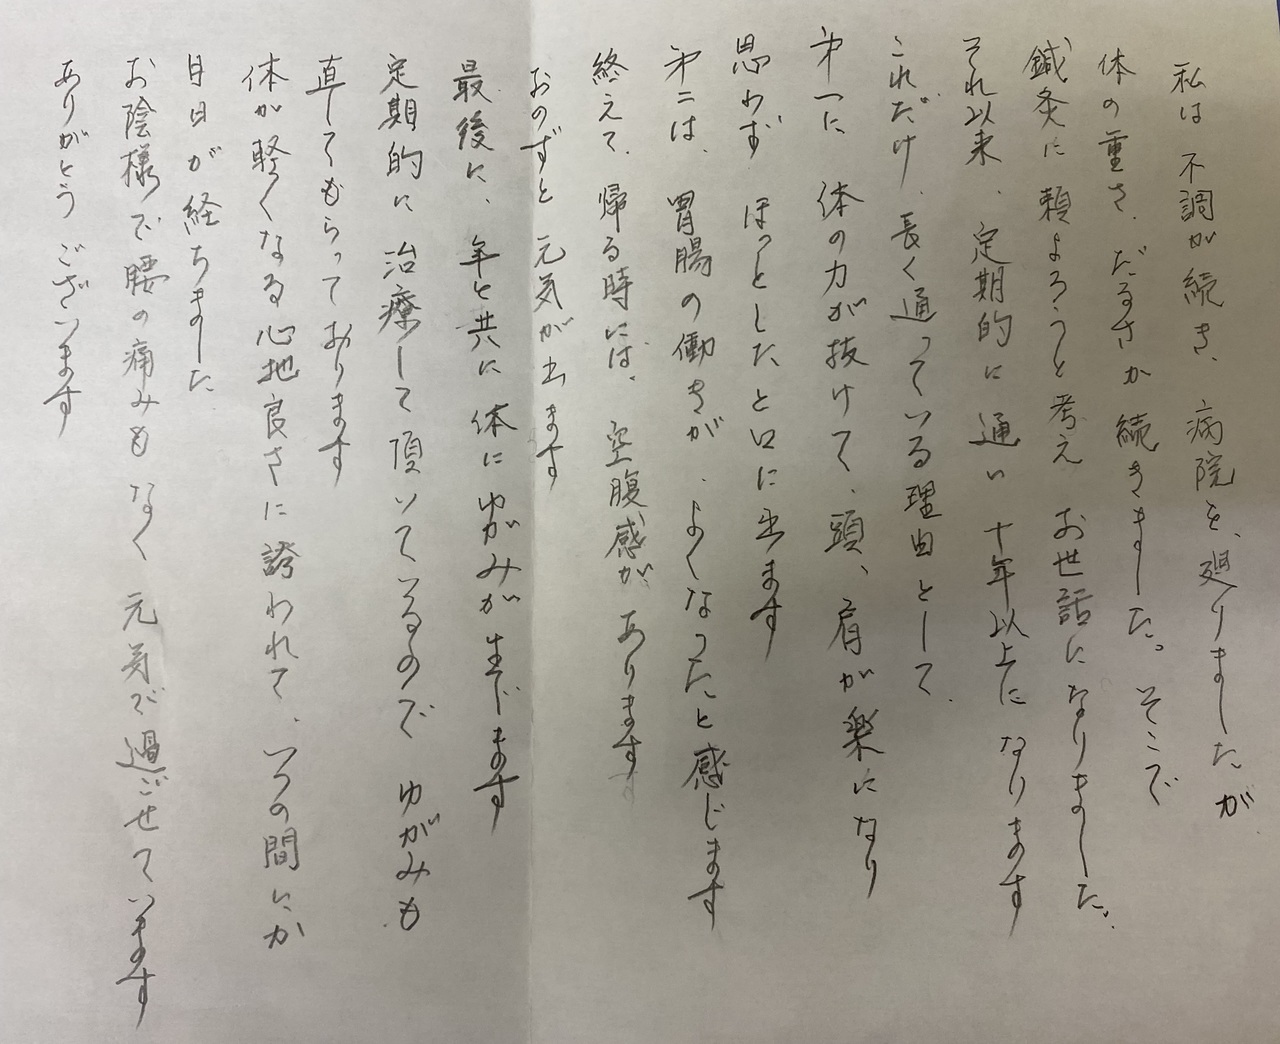 私は不調が続き、病院を、廻りましたが
体の重さ、だるさが続きました。そこで
鍼灸に頼よろうと考え お世話になりました。
それ以来、定期的に通い 十年以上になります
これだけ、長く通っている理由として、
第一に 体の力が抜けて、頭、肩が楽になり
思わず ほっとしたと口に出ます
第二は、胃腸の働きが、よくなったと感じます
終えて、帰る時には、空腹感があります
おのずと 元気が出ます
最後に、年と共に体にゆがみが生じます
定期的に治療して頂いているので ゆがみも
直してもらっております
体が軽くなる心地良さに誘われて、いつの間にか
月日が経ちました
お陰様で腰の痛みもなく 元気で過ごせています
ありがとう ございます